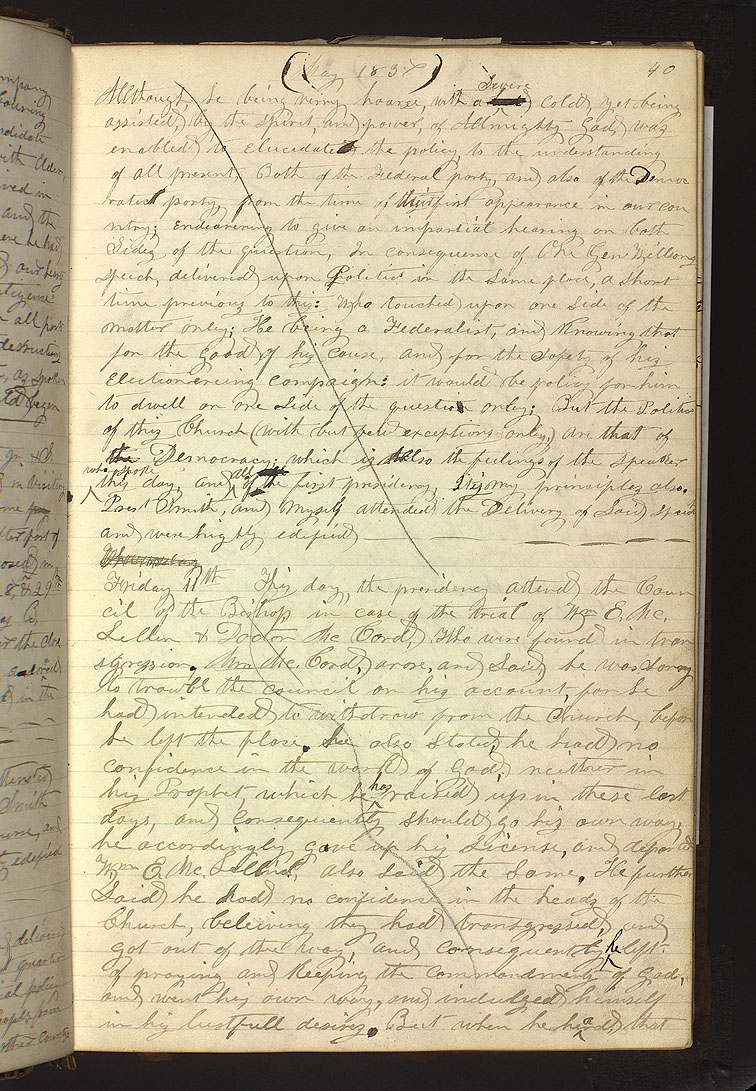 (May 1838) 40
Allthough he being verry hoarse, with a severe cold, yet being
assisted, by the spirit, and power, of Allmighty God, was
enabled to elucidate the policy, to the understanding
of all present, Both of the Federal party, and also of the Democ
ratic party, from the time of their first appearance in our cou
ntry; endeavering to give an impartial hearing on both
Sides of the question, In consequence of One Gen Willsons
speech, delivered upon Politics in the same place, a short
time previous to this: Who touched upon one side of the
matter only; He being a Federalist, and knowing that
for the good of his cause, and for the safety of his
electionereing campaign: it would be policy for him
to dwell on one side of the question only: But the Politics
of this Church (with but few exceptions only,) are that of
the Democracy; which is allso the feelings of the speaker
who spoke this day, and all of the first presidency, It is my principles also.
Prest Smith, and myself attended the Delivery of said speech
and were highly edified
Friday 11th This day, the presidency attend the Coun
cil of the Bishop in case of the trial of Wm E. Mc.
Lellin & Doctor Mc Cord, Who were found in tran
sgression. Mc. Cord, arose, and said he was sorry
to trouble the council on his account, for he
had intended to withdraw from the Church, before
he left the place. he also stated, he had no
confidence in the work of God, neither in
his Prophet, which he has raised up in these last
days, and consequently should go his own way,
he accordingly gave up his License, and departed
Wm E. Mc. Lellin, also said the same. He further
said he had no confidence in the heads of the
Church, beleiving they had transgressed, and
got out of the way, and consequently he left
of praying and keeping the commandments of God,
and went his own way, and indulged himself
in his lustfull desires. But when he heard, that